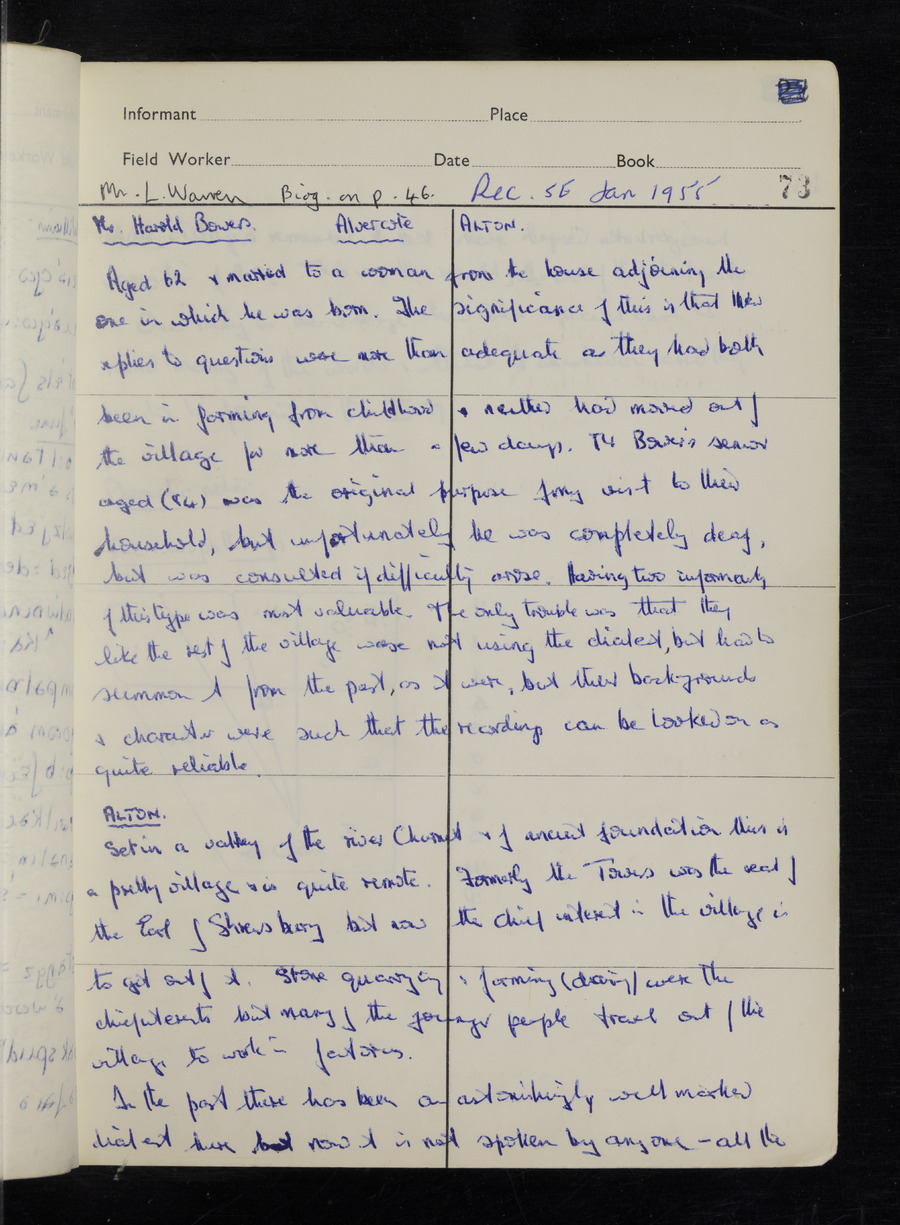 Informant Place
Field Worker Date Book
Mr. L. Warren Biog. on p. 46. Rec. 55 Jan 1955 73
Mr. Harold Bowers. Alvercote ALTON.
Aged 62 & married to a woman from the house adjoining the
one in which he was born. The significance of this is that their
replies to questions were more than adequate as they had both
been in farming from childhood & neither had moved out of
the village for more than a few days. T4 Bowers senior
aged (84) was the original purpose of my visit to their
household, but unfortunately he was completely deaf,
but was consulted if difficulty arose. Having two informants
of this type was most valuable. The only trouble was that they
like the rest of the village were not using the dialect, but had to
summon it from the past, as it were, but their backgrounds
& character were such that the recordings can be looked on as
quite reliable.
ALTON.
Set in a valley of the river Churnet & of ancient foundation this is
a pretty village & is quite remote. Formerly the Towers was the seat of
the Earl of Shrewsbury but now the chief interest in the village is
to get out of it. Stone quarrying & farming (dairy) were the
chief interests but many of the younger people travel out of the
village to work in factories.
In the past there has been an astonishingly well marked
dialect here but now it is not spoken by anyone – all the